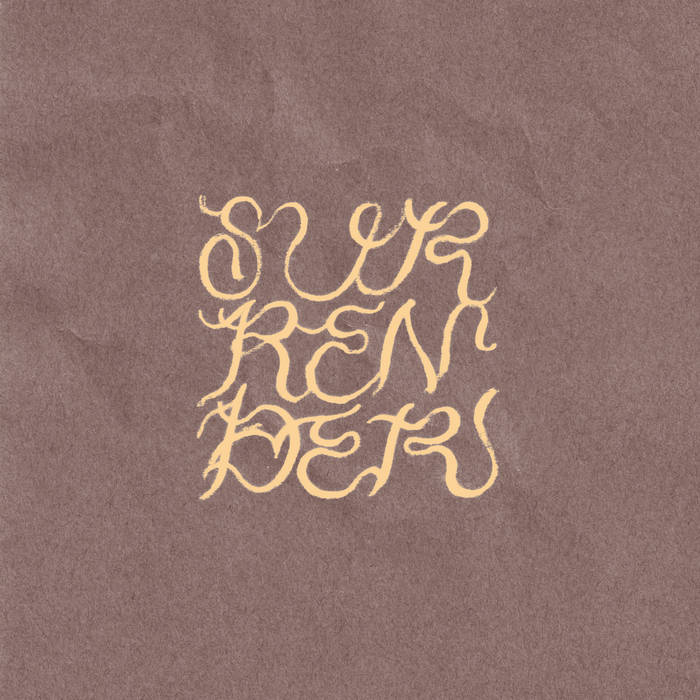 SUR
REN
DER